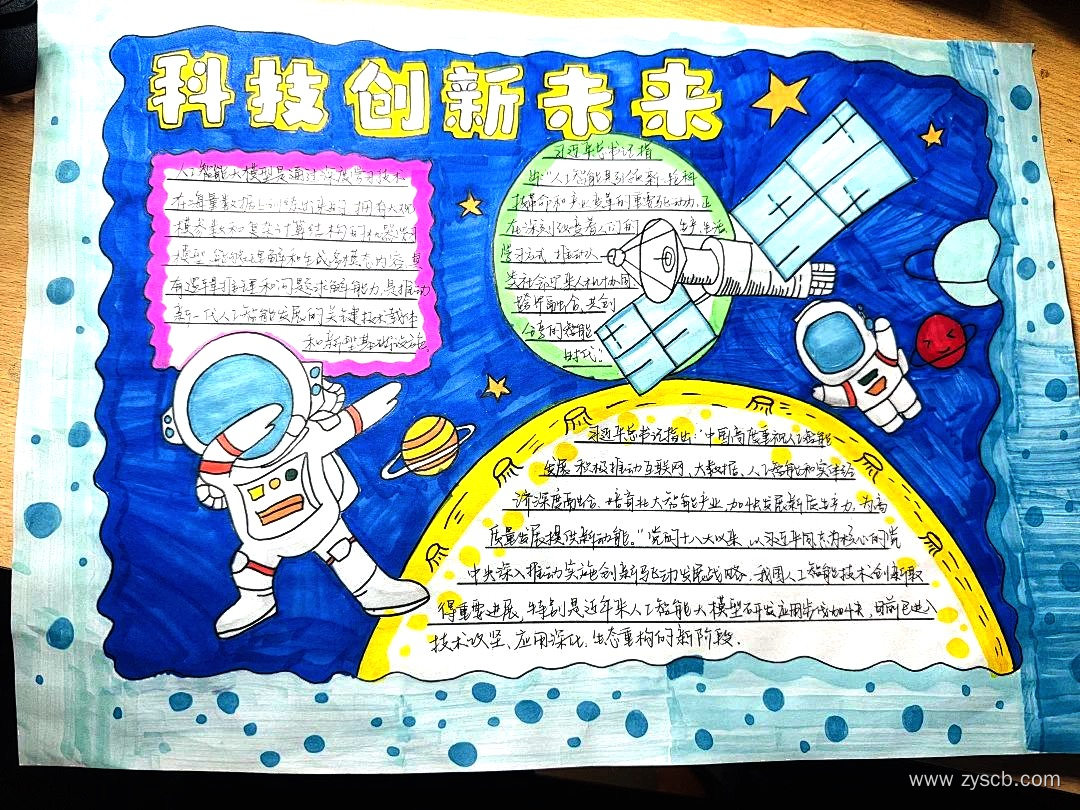 科技创新未来
人工智能大模型是通过深度学习技术
在海量数据上训练出来的,拥有大规
模参数和复杂计算结构的机器学习
模型,能够理解和生成多模态内容,具
有逻辑推理和问题求解能力,是推动
新一代人工智能发展的关键技术载体
和新型基础设施。
习近平总书记指
出:“人工智能是引领新一轮科
技革命和产业变革的重要驱动力,正
在深刻改变着人们的生产、生活、
学习方式,推动人
类社会迎来人机协同、
跨界融合、共创
分享的智能
时代。”
习近平总书记指出:“中国高度重视人工智能
发展,积极推动互联网、大数据、人工智能和实体经
济深度融合,培育壮大智能产业,加快发展新质生产力,为高
质量发展提供新动能。”党的十八大以来,以习近平同志为核心的党
中央深入推动实施创新驱动发展战略,我国人工智能技术创新取
得重要进展,特别是近年来人工智能大模型研发应用步伐加快,目前已进入
技术攻坚、应用深化、生态重构的新阶段.
www.zyscb.com